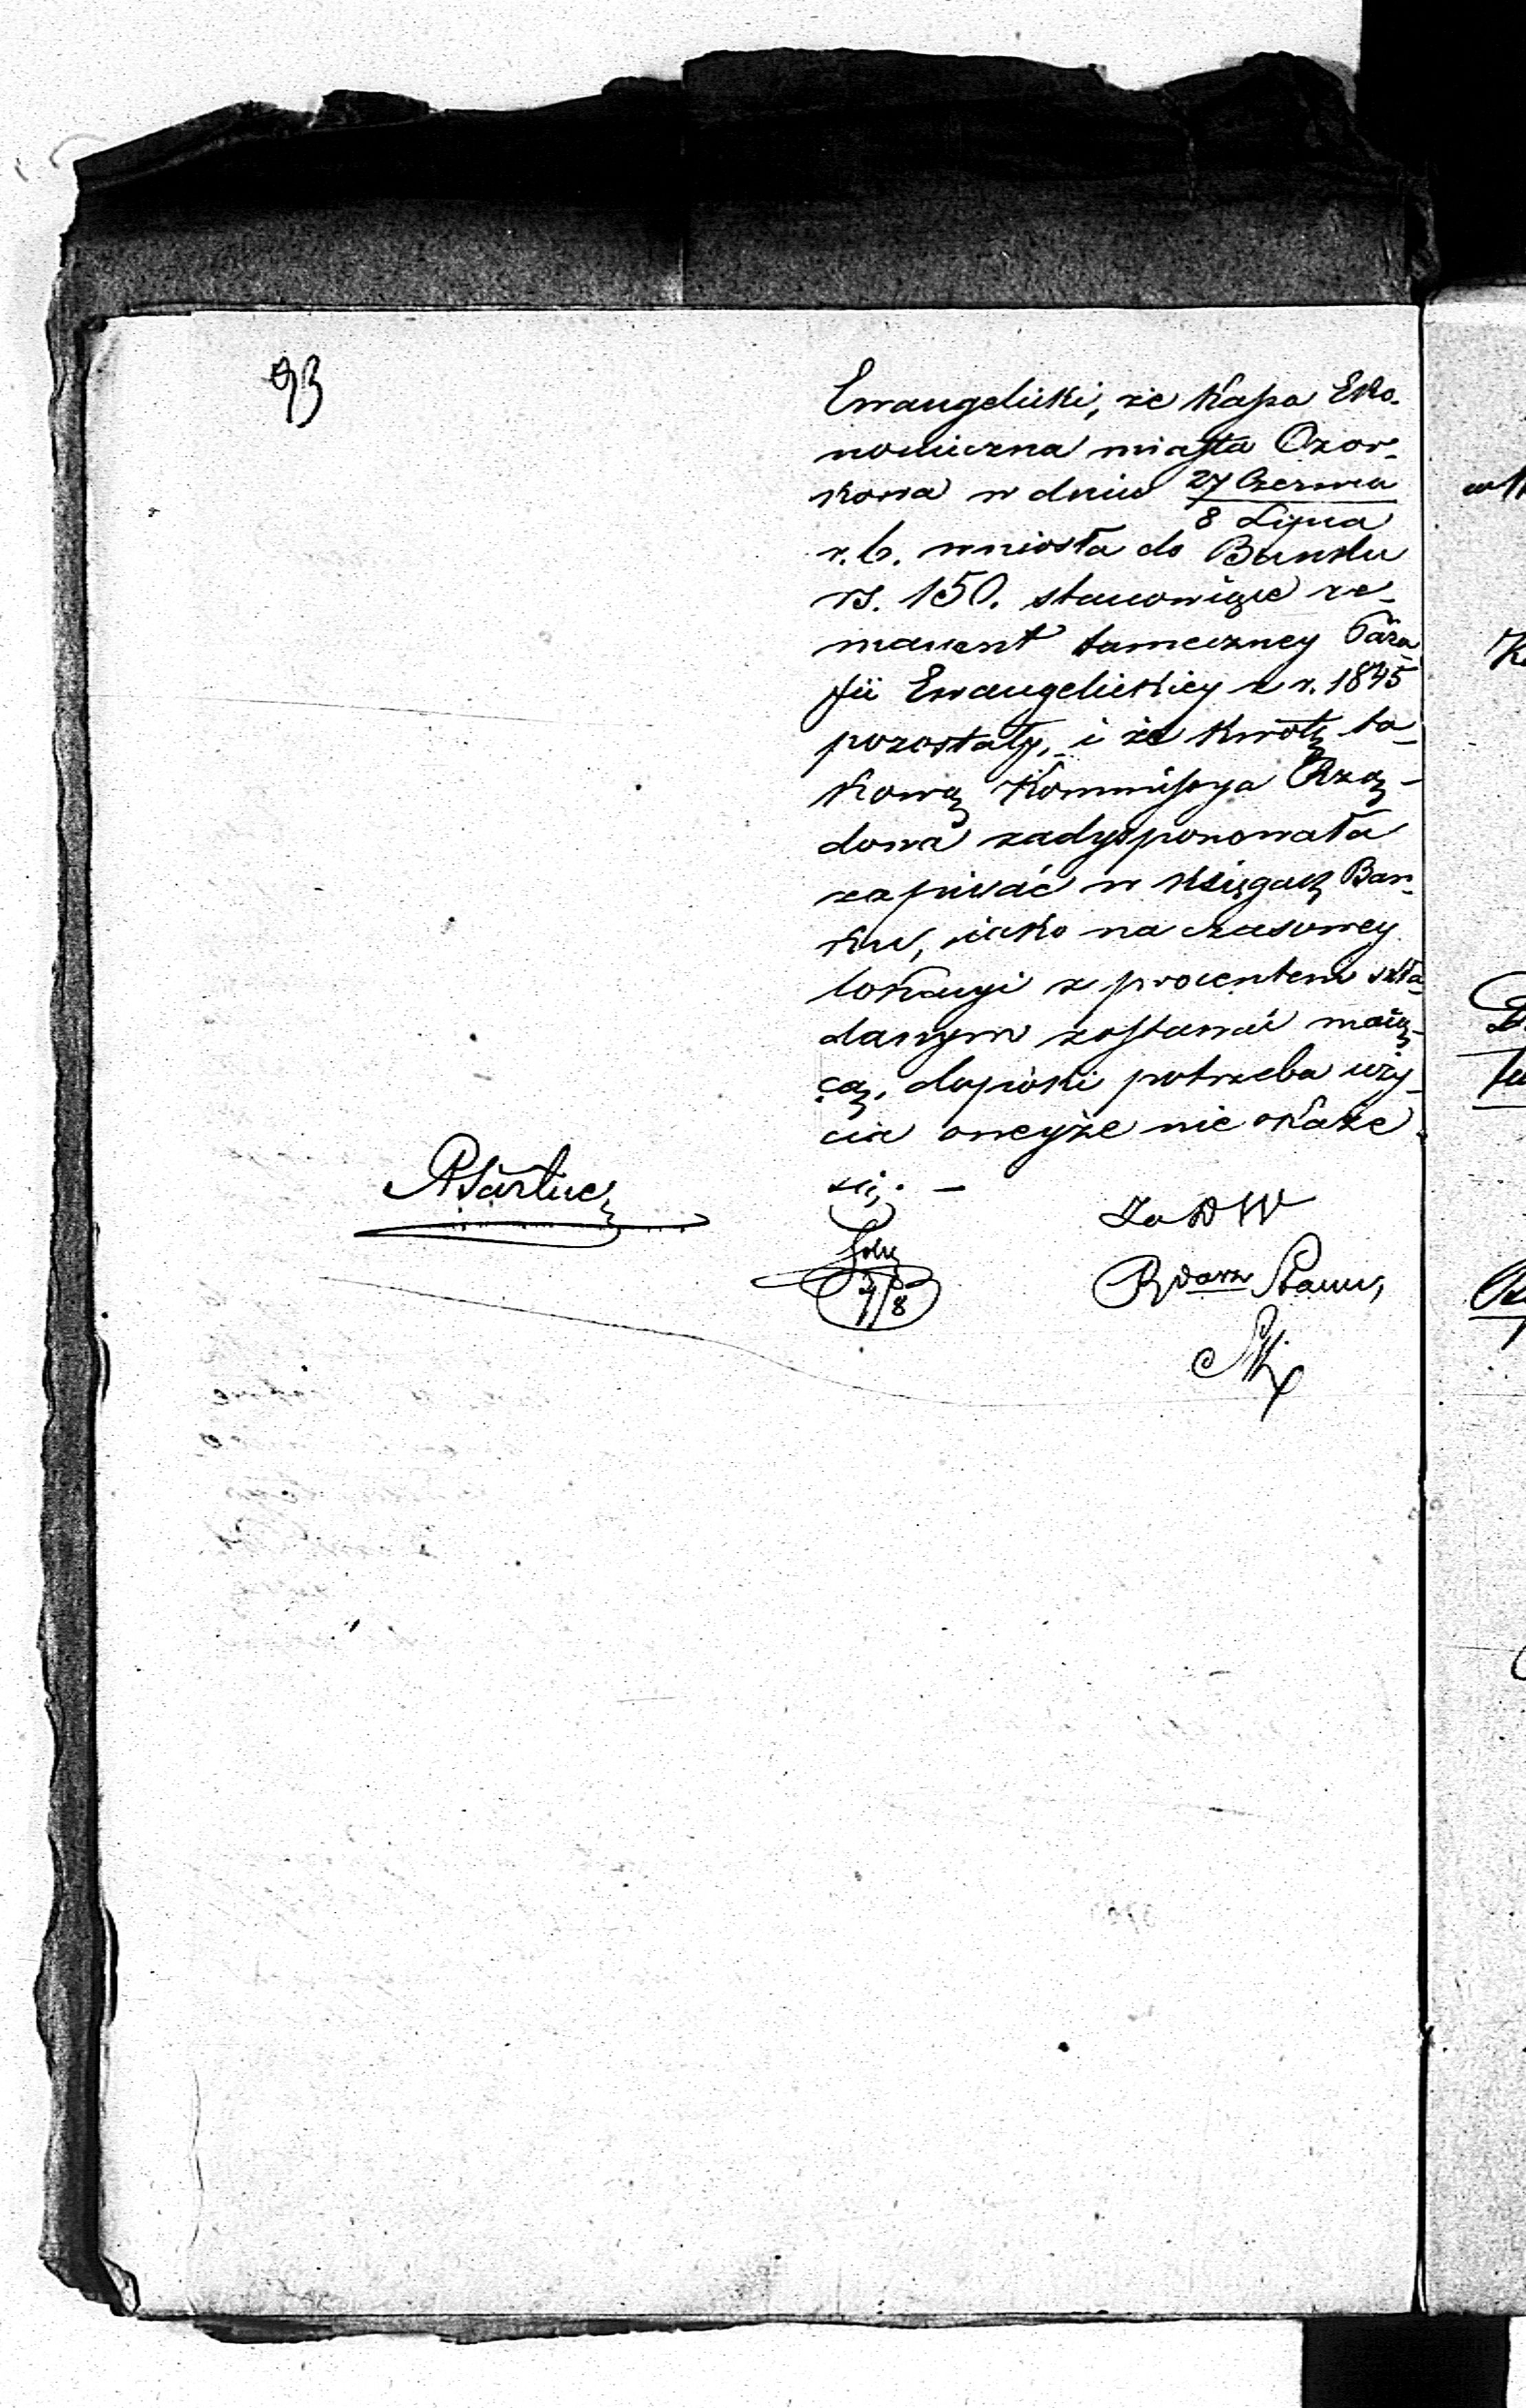 93
Ewangelicki, że Kassa Eko-
nomiczna miasta Ozor-
kowa w dniu 27 Czerwca
8 Lipca
r. b. wniosła do Banku
rs. 150. stanowiące re-
manent tamecznej Para-
fii Ewangelickiey z r. 1845
pozostały, i że kwotę ta-
kową Kommissya Rzą-
dowa zadysponowała
zapisać w księgach Ban-
ku, iako na czasowey
lokacyi z procentem skła-
danym zostawać maią-
cą, dopóki potrzeba uży-
cia oneyże nie okaże
się. —
Za D W
R. Stanu,
7/8